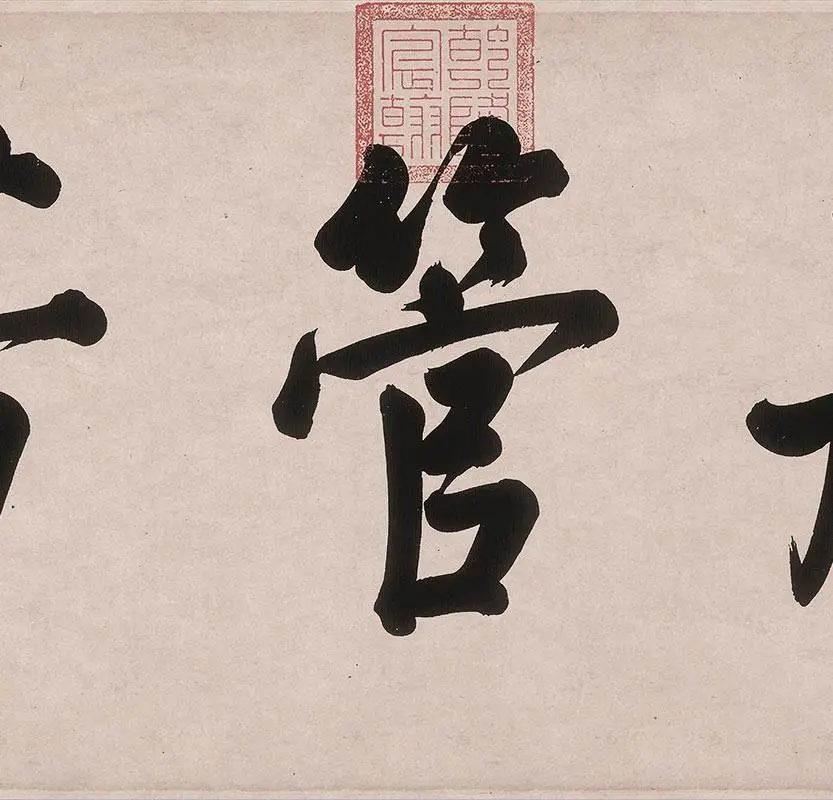 乾隆
宸翰
管